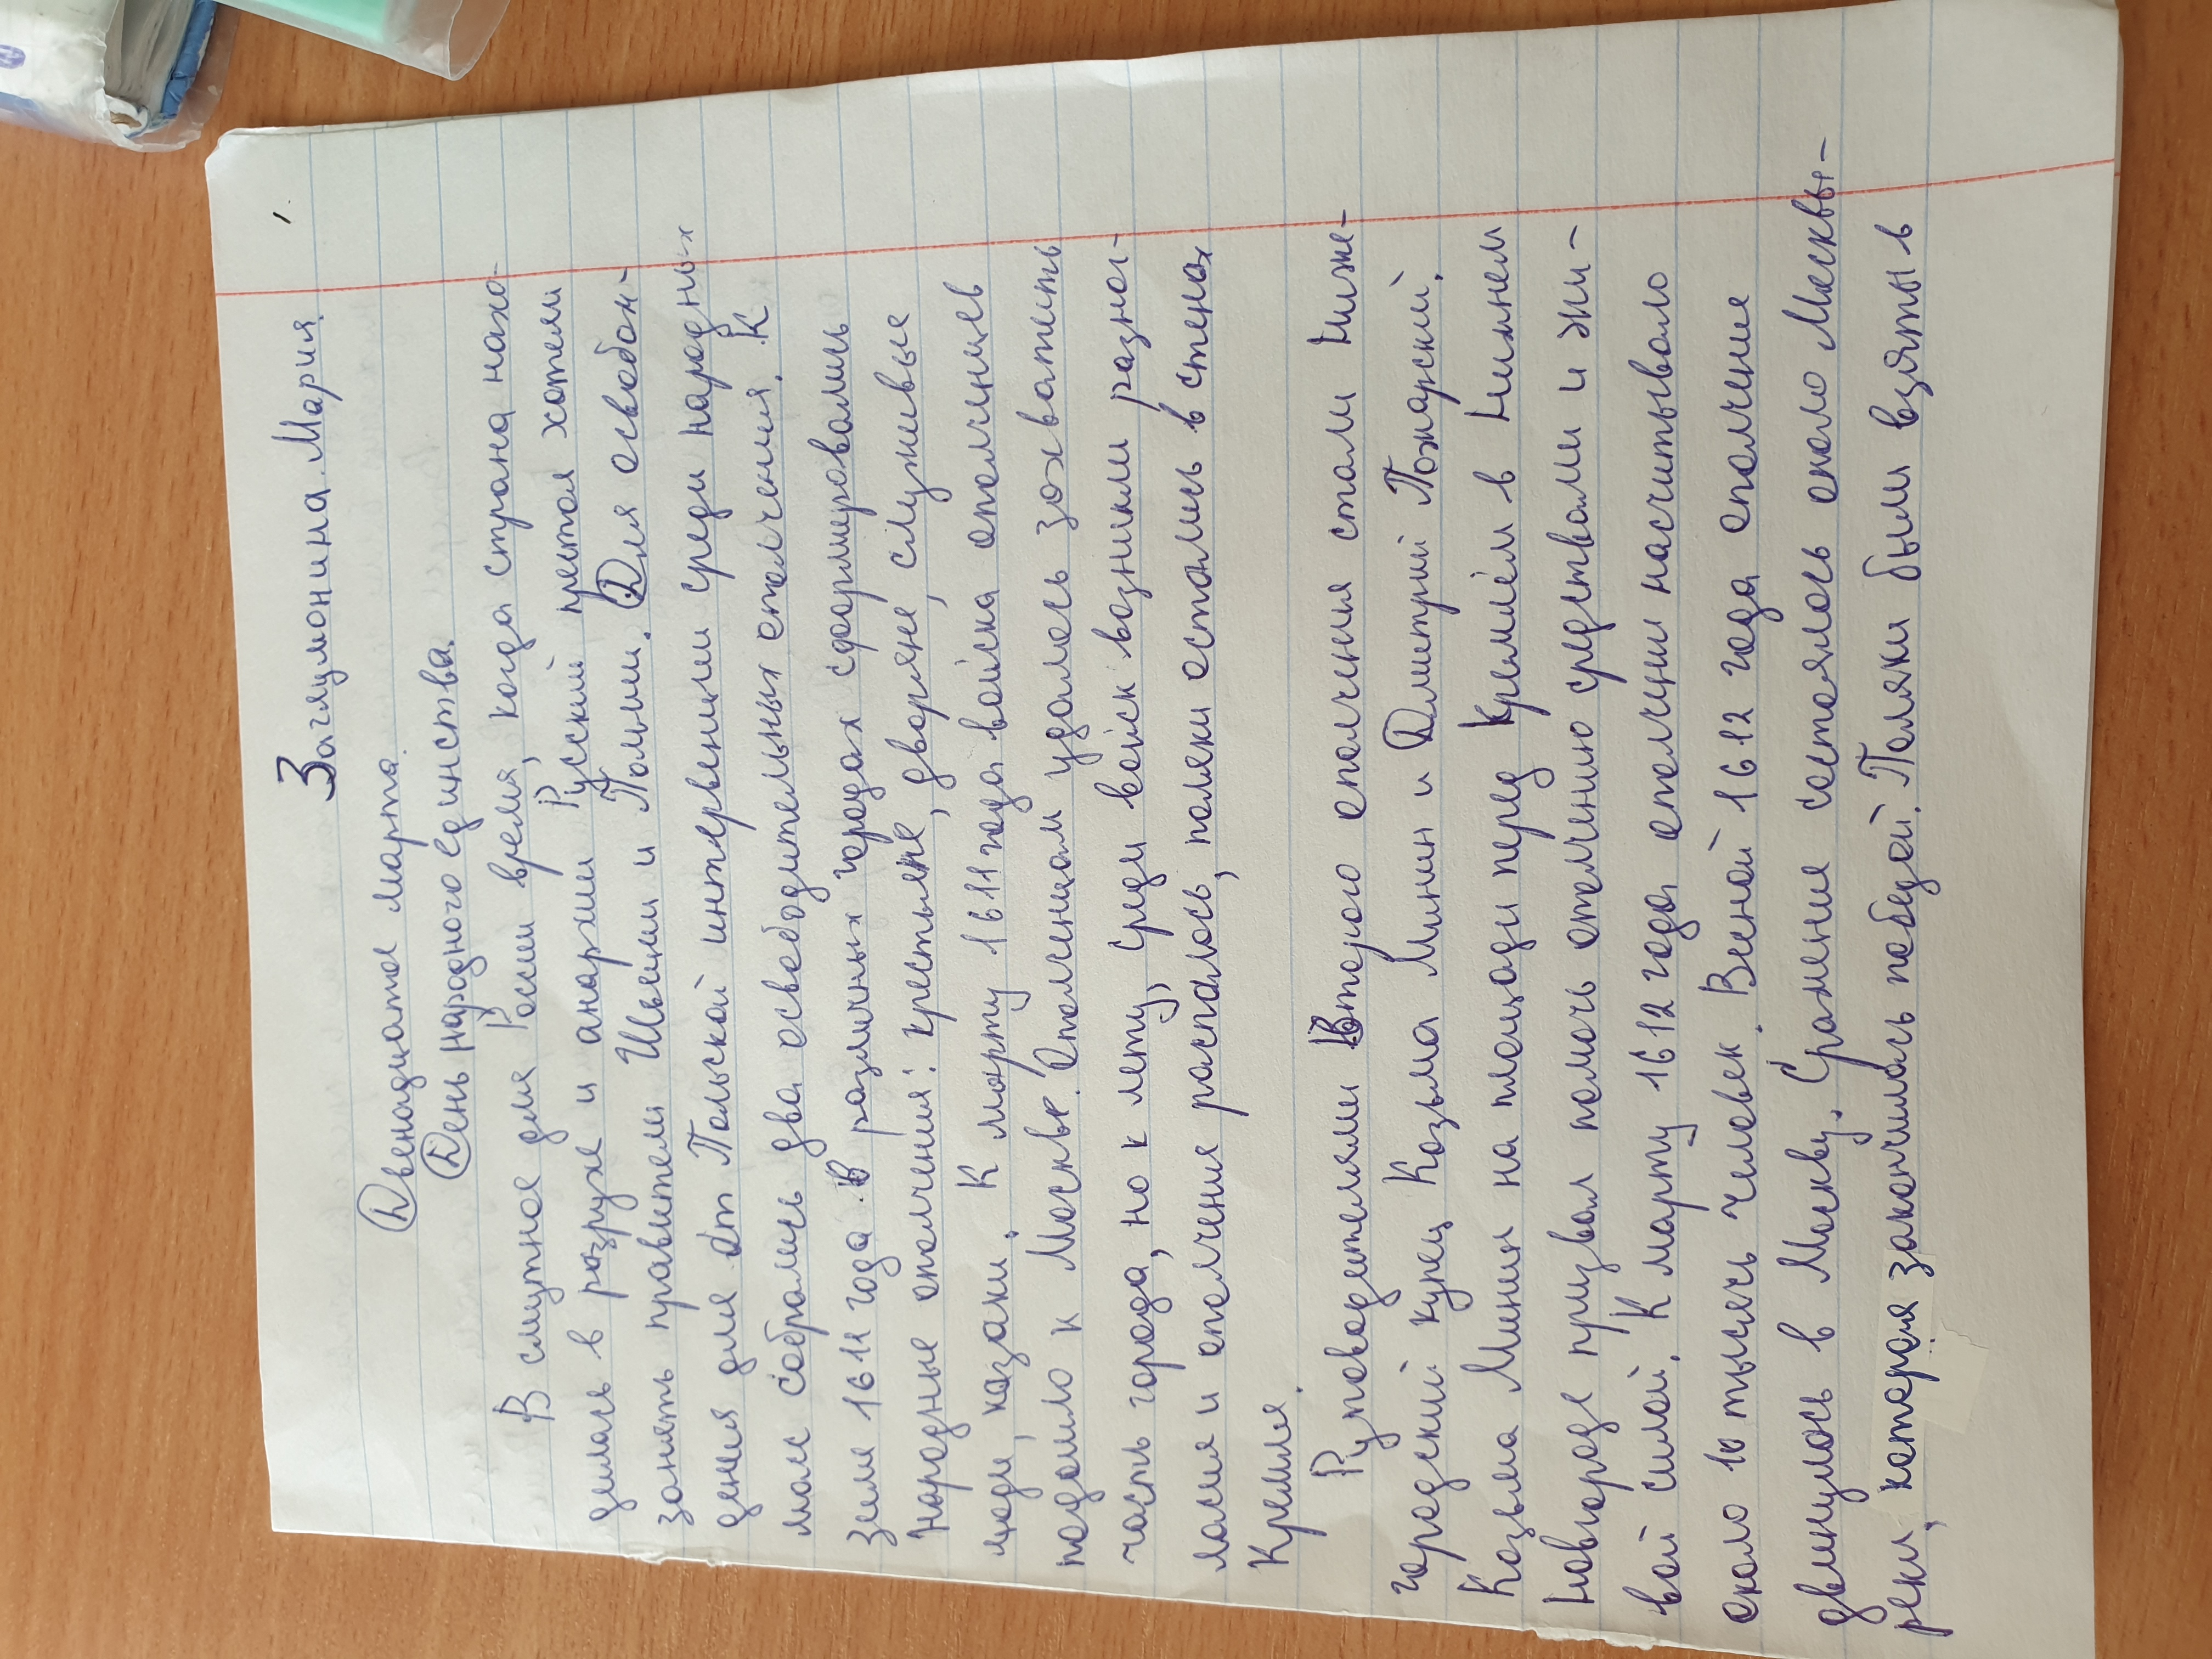 Заглумонина Мария.
Двенадцатое марта.
День народного единства.
В смутное для Росии время, когда страна нахо-
дилась в разрухе и анархии Русский престол хотели
занять правители Швеции и Польши. Для освобож-
дения для от Польской интервенции среди народных
масс собрались два освободительных ополчения. К
зиме 1611 года в различных городах сформировались
народные ополчения: крестьяне, дворяне, служивые
люди, козаки. К марту 1611 года войска ополченцев
подошло к Москве. Ополченцам удалось зохватить
часть города, но к лету, среди войск возникли разног-
ласие и ополчение распалось, поляки остались в стенах
Кремля.
Руководителями второго ополчения стали Ниже-
городский купец Козьма Минин и Дмитрий Пожарский.
Козьма Минин на площади перед Кремлём в Нижнем
Новгороде призвал помочь ополчению средствами и жи-
вой силой. К марту 1612 года ополчении насчитывало
около 10 тысяч человек. Весной 1612 года ополчение
двинулось в Москву. Сражение состоялось около Москвы-
реки, которая закончилась победой. Поляки были взяты в